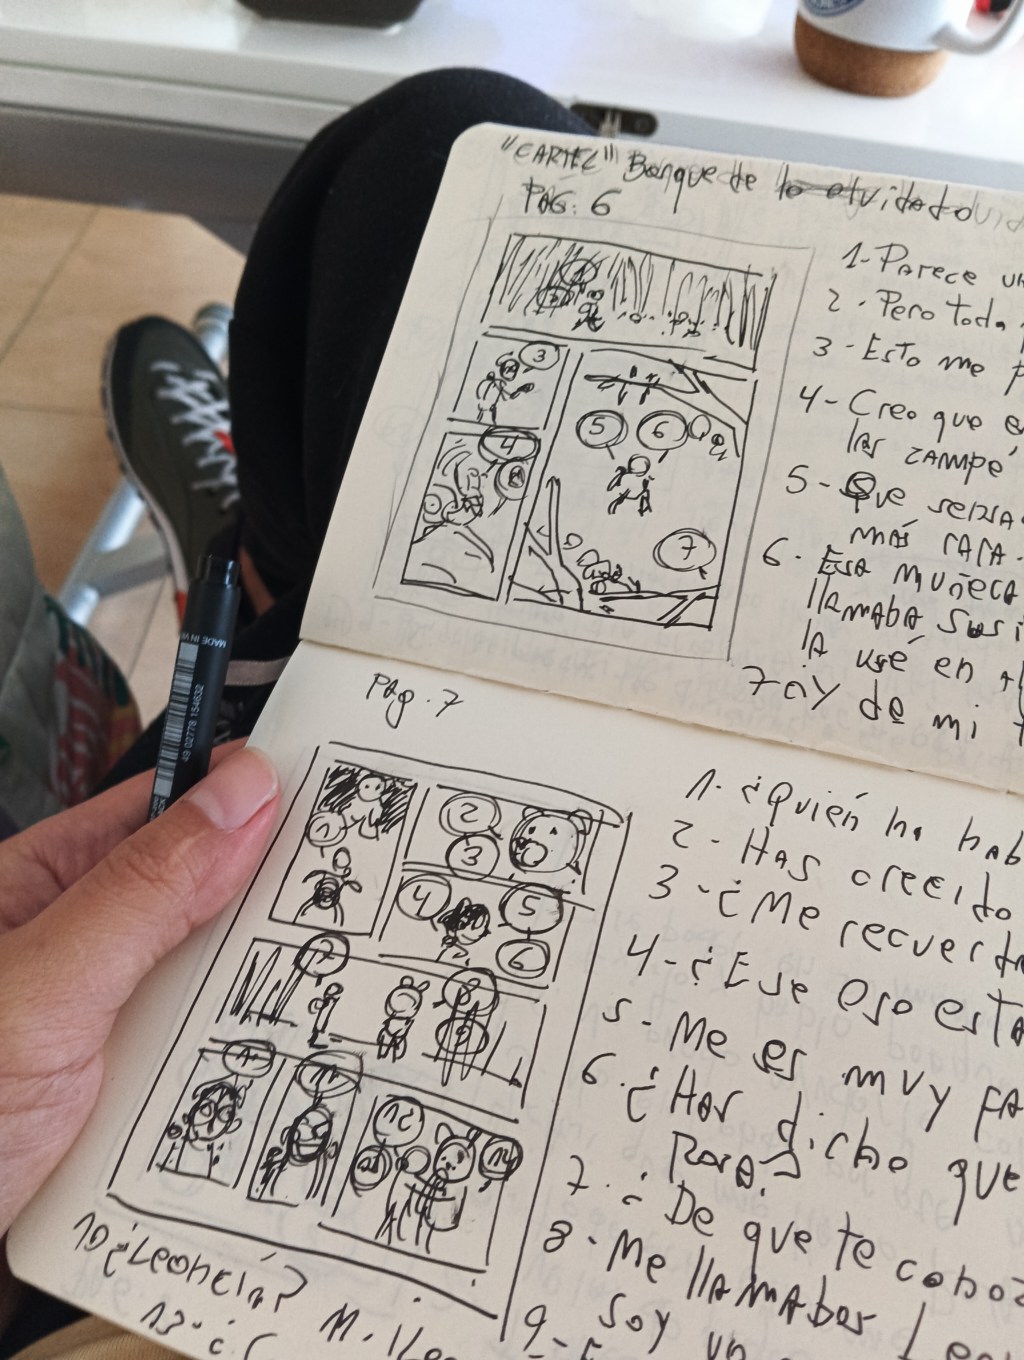 "CARTEL" Bosque de lo olvidado
PAG. 6
1-PARECE UN
2-Pero toda
3-Esto me P
4-Creo que e
LAS ZAMPÉ
5-Que SERIA
MÁS RARA.
6-ESA MUÑECA
llAMABA SUSI
lA usé en
7 ¡Ay DE mi
1
2
3
4
8
5
6
7
PAg. 7
1-¿Quién ha hab
2-HAS crecido
3-¿Me recuerda
4-¿Ese oso esta
5-Me es muy FA
6.¿HAS dicho que
RARA?
7-¿De que te conoz
8-Me llAMAbas Leo
9-
Soy un
10¿Leoncia?
11.
13-¿
1
2
3
4
5
6
7
8
9
10
11
12
13
14
MADE IN
49 02778 154632